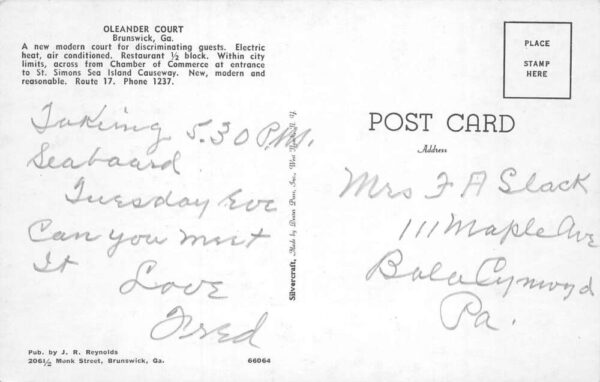 OLEANDER COURT
Brunswick, Ga.
A new modern court for discriminating guests. Electric
heat, air conditioned. Restaurant ½ block. Within city
limits, across from Chamber of Commerce at entrance
to St. Simons Sea Island Causeway. New, modern and
reasonable. Route 17. Phone 1237.
Taking 5.30 P.M.
Seaboard
Tuesday Eve
Can you meet
It
Love
Fred
Pub. by J. R. Reynolds
206½ Monk Street, Brunswick, Ga.
66064
Silvercraft, Made by Dexter Press, Inc., West Nyack, N. Y.
PLACE
STAMP
HERE
POST CARD
Address
Mrs F A Slack
111 Maple Ave
Bala Cynwyd
Pa.